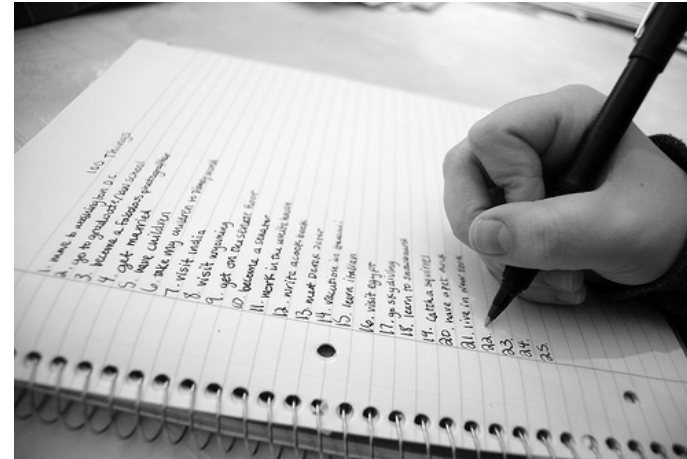 100 Things
1. move to washington D.C.
2. go to graduate/law school
3. become a fabulous photographer
4. get married
5. have children
6. take my children to disney world
7. visit India
8. visit wyoming
9. get on the senate floor
10. become a senator
11. work in the white house
12. write a cook book
13. meet Derek Jeter
14. vacation in hawaii
15. learn italian
16. visit egypt
17. go skydiving
18. learn to
19. catch a squirrel
20. have a pet
21. live in new york
22.
23.
24.
25.